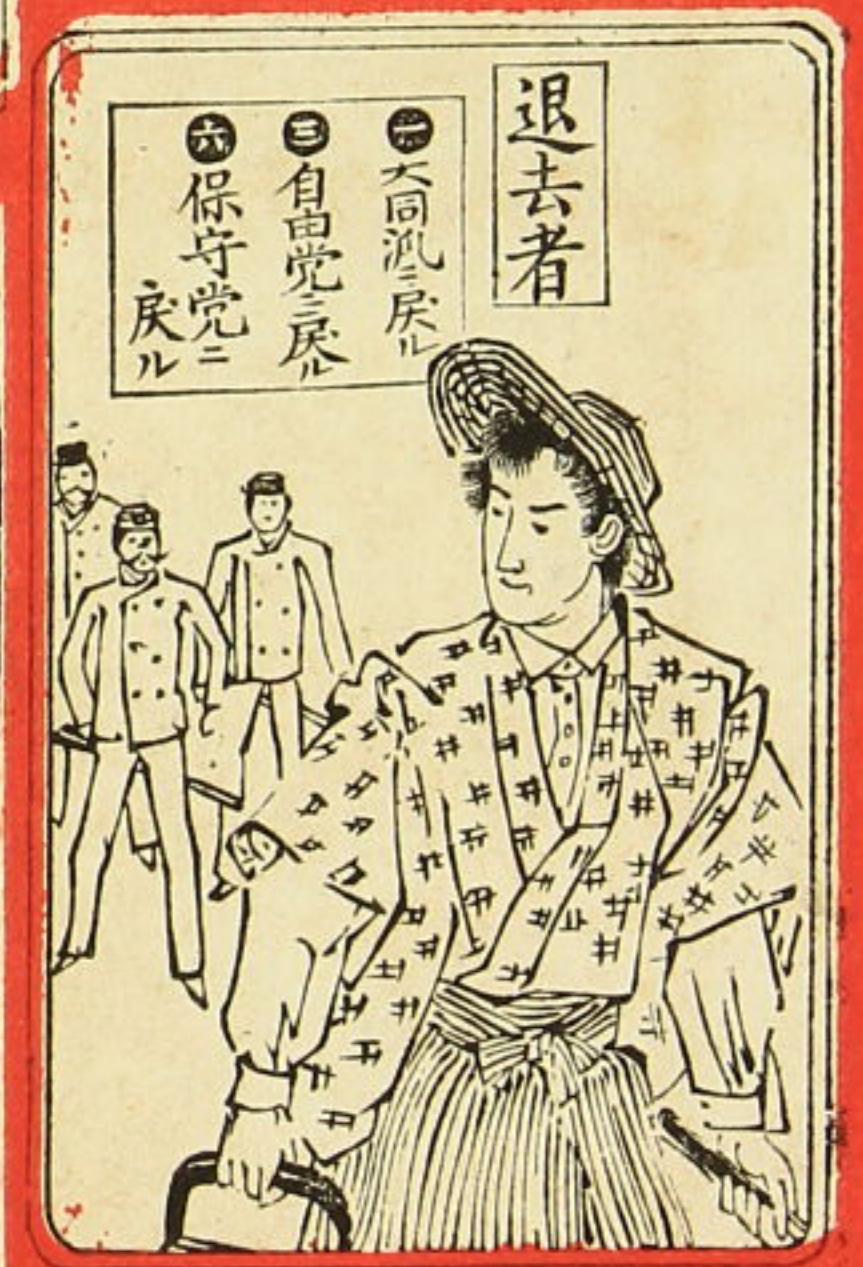 退去者
一 大同派ニ戻ル
三 自由党ニ戻ル
六 保守党ニ
戻ル